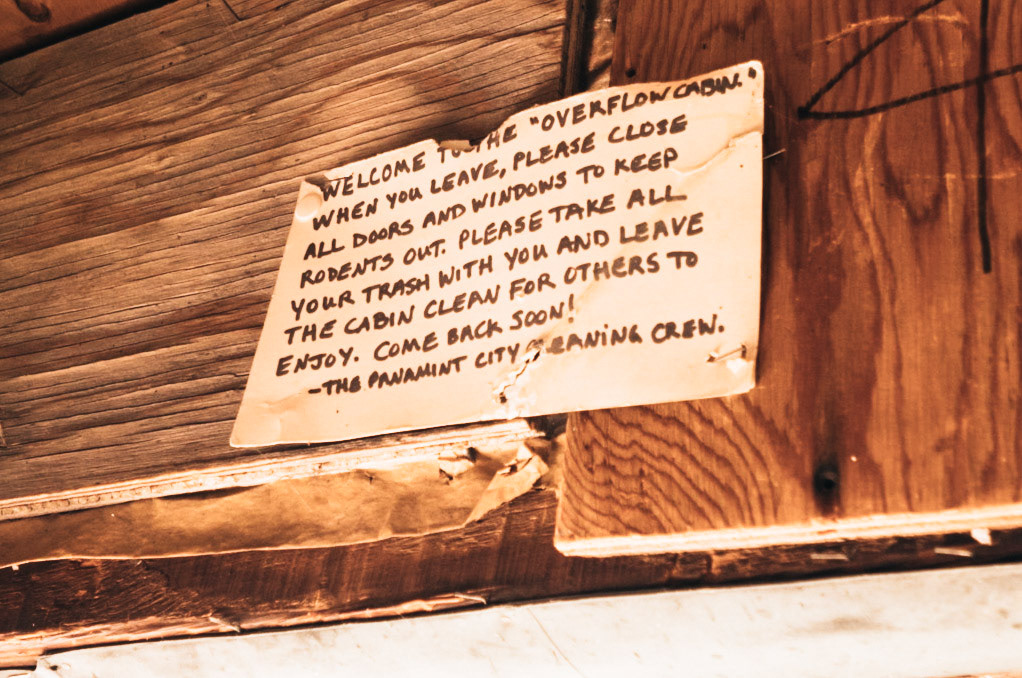 WELCOME TO THE "OVERFLOW CABIN."
WHEN YOU LEAVE, PLEASE CLOSE
ALL DOORS AND WINDOWS TO KEEP
RODENTS OUT. PLEASE TAKE ALL
YOUR TRASH WITH YOU AND LEAVE
THE CABIN CLEAN FOR OTHERS TO
ENJOY. COME BACK SOON!
-THE PANAMINT CITY CLEANING CREW.